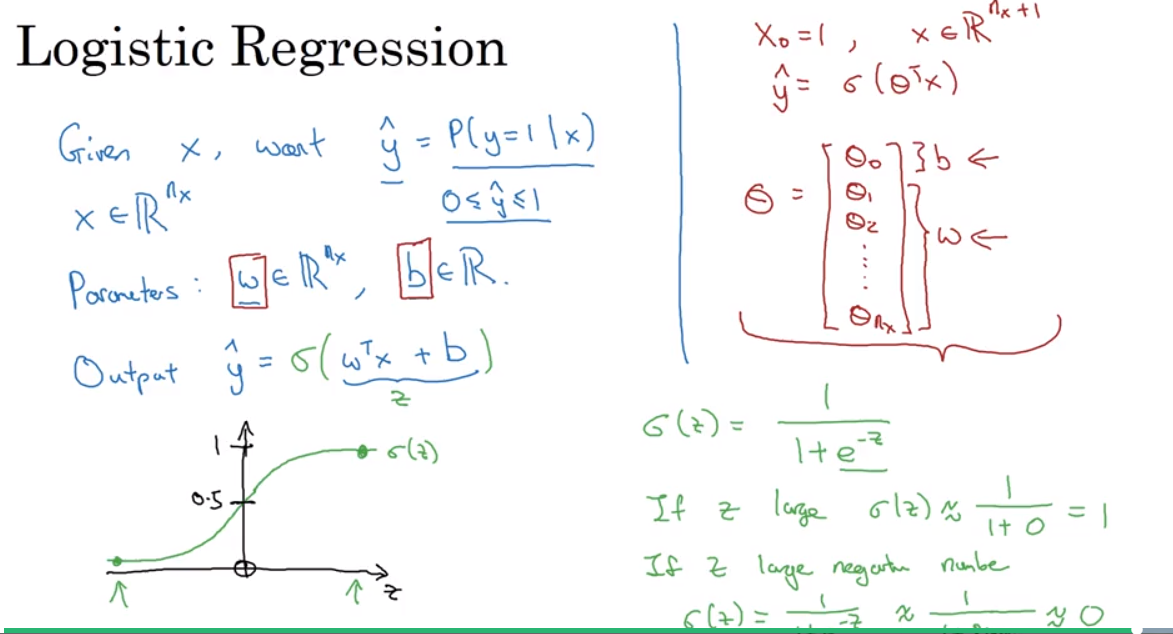 Logistic Regression
Given x, want ŷ = P(y=1|x)
x ∈ ℝ^{n_x}
0 ≤ ŷ ≤ 1
Parameters: w ∈ ℝ^{n_x}, b ∈ ℝ.
Output ŷ = σ(w^T x + b)
z
1
σ(z)
0.5
z
x_0 = 1, x ∈ ℝ^{n_x+1}
ŷ = σ(θ^T x)
θ = [θ_0 } b ←
θ_1
θ_2
⋮ } w ←
θ_{n_x}]
σ(z) = 1 / (1 + e^{-z})
If z large σ(z) ≈ 1 / (1 + 0) = 1
If z large negative number
σ(z) = 1 / (1 + e^{-z}) ≈ 1 / ≈ 0